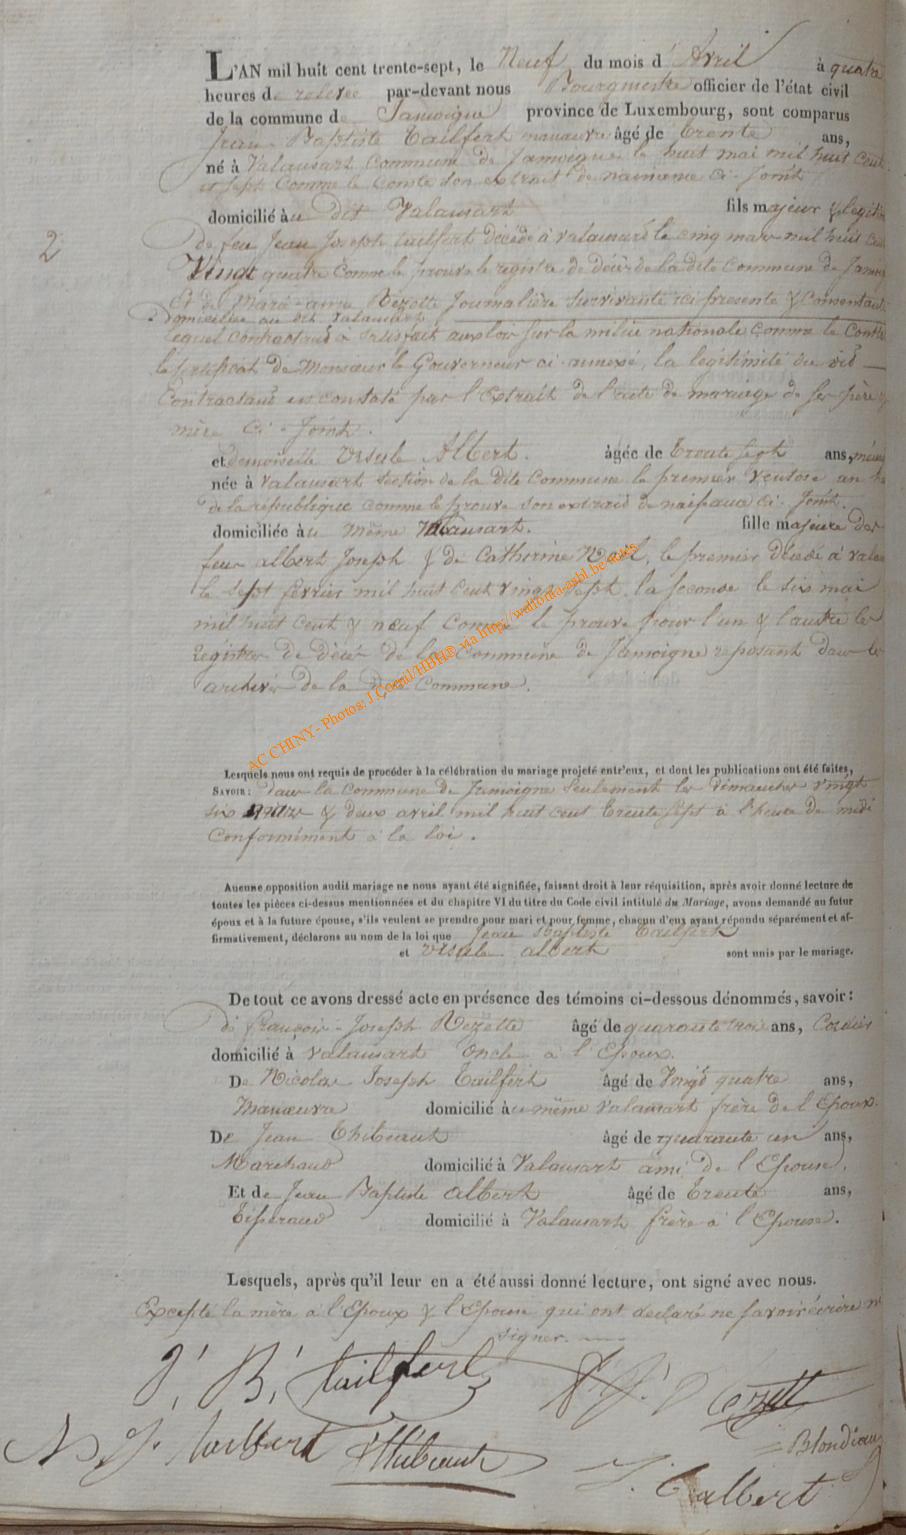 L'AN mil huit cent trente-sept, le Neuf du mois d' Avril à quatre
heures de relevée par-devant nous Bourgmestre officier de l'état civil
de la commune de Jamoigne province de Luxembourg, sont comparus
Jean Baptiste Tailfert manœuvre âgé de trente ans,
né à Valansart Commune de Jamoigne le huit mai mil huit cent
et sept Comme le conste son extrait de naissance ci-joint
domicilié au dit Valansart fils majeur & légitime
2
de feu Jean Joseph tailfert décédé à valansart le cinq mars mil huit cent
Vingt quatre comme le prouve le registre de décès de la dite commune de Jamoigne
Et de Marie-anne Rezette Journalière survivante ici presente & Consentante
domiciliée au dit valansart
lequel contractant a satisfait aux lois sur la milice nationale comme le
le certificat de Monsieur le Gouverneur ci-annexé, la légitimité du dit
Contractant est constaté par l'Extrait de l'acte de mariage de ses père &
mère Ci-Joint.
et demoiselle Ursule Albert. âgée de trente sept ans,
née à Valansart section de la dite Commune le premier ventose an
de la république comme le prouve son extrait de naissance ci-Joint.
domiciliée au même Valansart. fille majeure des
feux albert Joseph & de Catherine Noël, le premier décédé à
le sept février mil huit cent vingt sept, la seconde le six mai
mil huit cent & neuf comme le prouve pour l'un & l'autre les
registres de décès de la Commune de Jamoigne reposant dans les
archives de la dite Commune.
AC CHINY - Photos: J.Cornil/HBH© via http://wallonia-asbl.be/actes
Lesquels nous ont requis de procéder à la célébration du mariage projeté entr'eux, et dont les publications ont été faites,
SAVOIR: dans la commune de Jamoigne seulement les dimanches vingt
six mars & deux avril mil huit cent trente sept à l'heure de midi
Conformément à la loi.
Aucune opposition audit mariage ne nous ayant été signifiée, faisant droit à leur réquisition, après avoir donné lecture de
toutes les pièces ci-dessus mentionnées et du chapitre VI du titre du Code civil intitulé du Mariage, avons demandé au futur
époux et à la future épouse, s'ils veulent se prendre pour mari et pour femme, chacun d'eux ayant répondu séparément et af-
firmativement, déclarons au nom de la loi que Jean Baptiste Tailfert
et Ursule albert sont unis par le mariage.
De tout ce avons dressé acte en présence des témoins ci-dessous dénommés, savoir:
De françois-Joseph Rezette âgé de quarante trois ans,
domicilié à Valansart Oncle à l'Epoux.
De Nicolas Joseph Tailfert âgé de Vingt quatre ans,
Manœuvre domicilié au même Valansart frère de l'Epoux.
De Jean Thibeaut âgé de quarante un ans,
Marchand domicilié à Valansart ami de l'Epouse,
Et de Jean Baptiste albert âgé de trente ans,
Tisserand domicilié à Valansart frère à l'Epouse.
Lesquels, après qu'il leur en a été aussi donné lecture, ont signé avec nous.
Excepté la mère à l'Epoux & l'Epouse qui ont déclaré ne savoir écrire ni
signer.
J. B. tailfert
f. J. Rezett
N J. tailfert
J Thibeaut
Blondiau
J. B albert